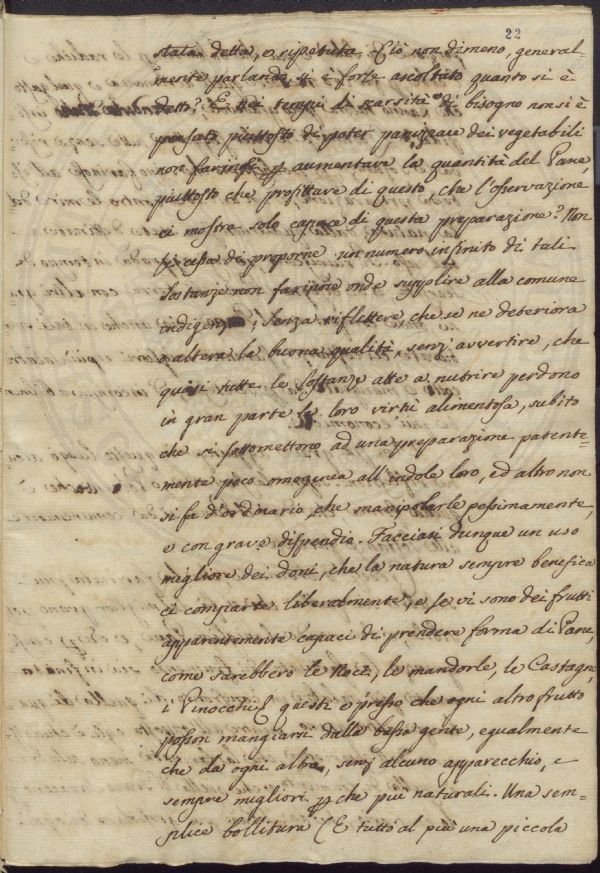 22
stata detta, e ripetuta. Ciò non dimeno, general=
mente parlando si è forse ascoltato quanto si è
detto? E nei tempi di scarsità e di bisogno non si è
pensato piuttosto di poter panizzare dei vegetabili
non farinosi per aumentare la quantità del Pane,
piuttosto che profittare di questo, che l'osservazione
ci mostra solo capace di questa preparazione? Non
si cessa di proporne un numero infinito di tali
Sostanze non farinose onde supplire alla comune
indigenza, senza riflettere, che se ne deteriora
e altera la buona qualità, senz'avvertire, che
quasi tutte le sostanze atte a nutrire perdono
in gran parte la loro virtù alimentosa, subito
che si sottomettono ad una preparazione patente=
mente poco omogenea all'indole loro, ed altro non
si fa d'ordinario, che manipolarle pessimamente,
e con grave dispendio. Facciasi dunque un uso
migliore dei doni, che la natura sempre benefica
ci comparte liberalmente, e se vi sono dei frutti
apparentemente capaci di prendere forma di Pane,
come sarebbero le Noci, le mandorle, le Castagne,
i Pinocchi questi e presso che ogni altro frutto
posson mangiarsi dalla bassa gente, egualmente
che da ogni altra, senz' alcuno apparecchio, e
sempre migliori per che più naturali. Una sem=
plice bollitura (E tutto al più una piccola